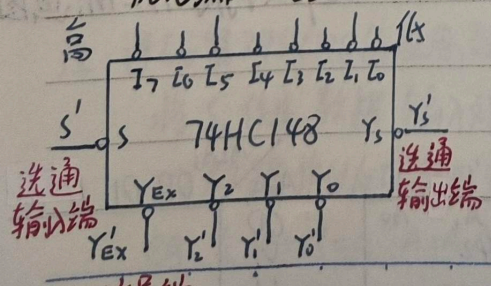 高 低
I7 I6 I5 I4 I3 I2 I1 I0
S' S 74HC148 Ys Ys'
选通 选通
输入端 输出端
YEX Y2 Y1 Y0
Y'EX Y2' Y1' Y0'